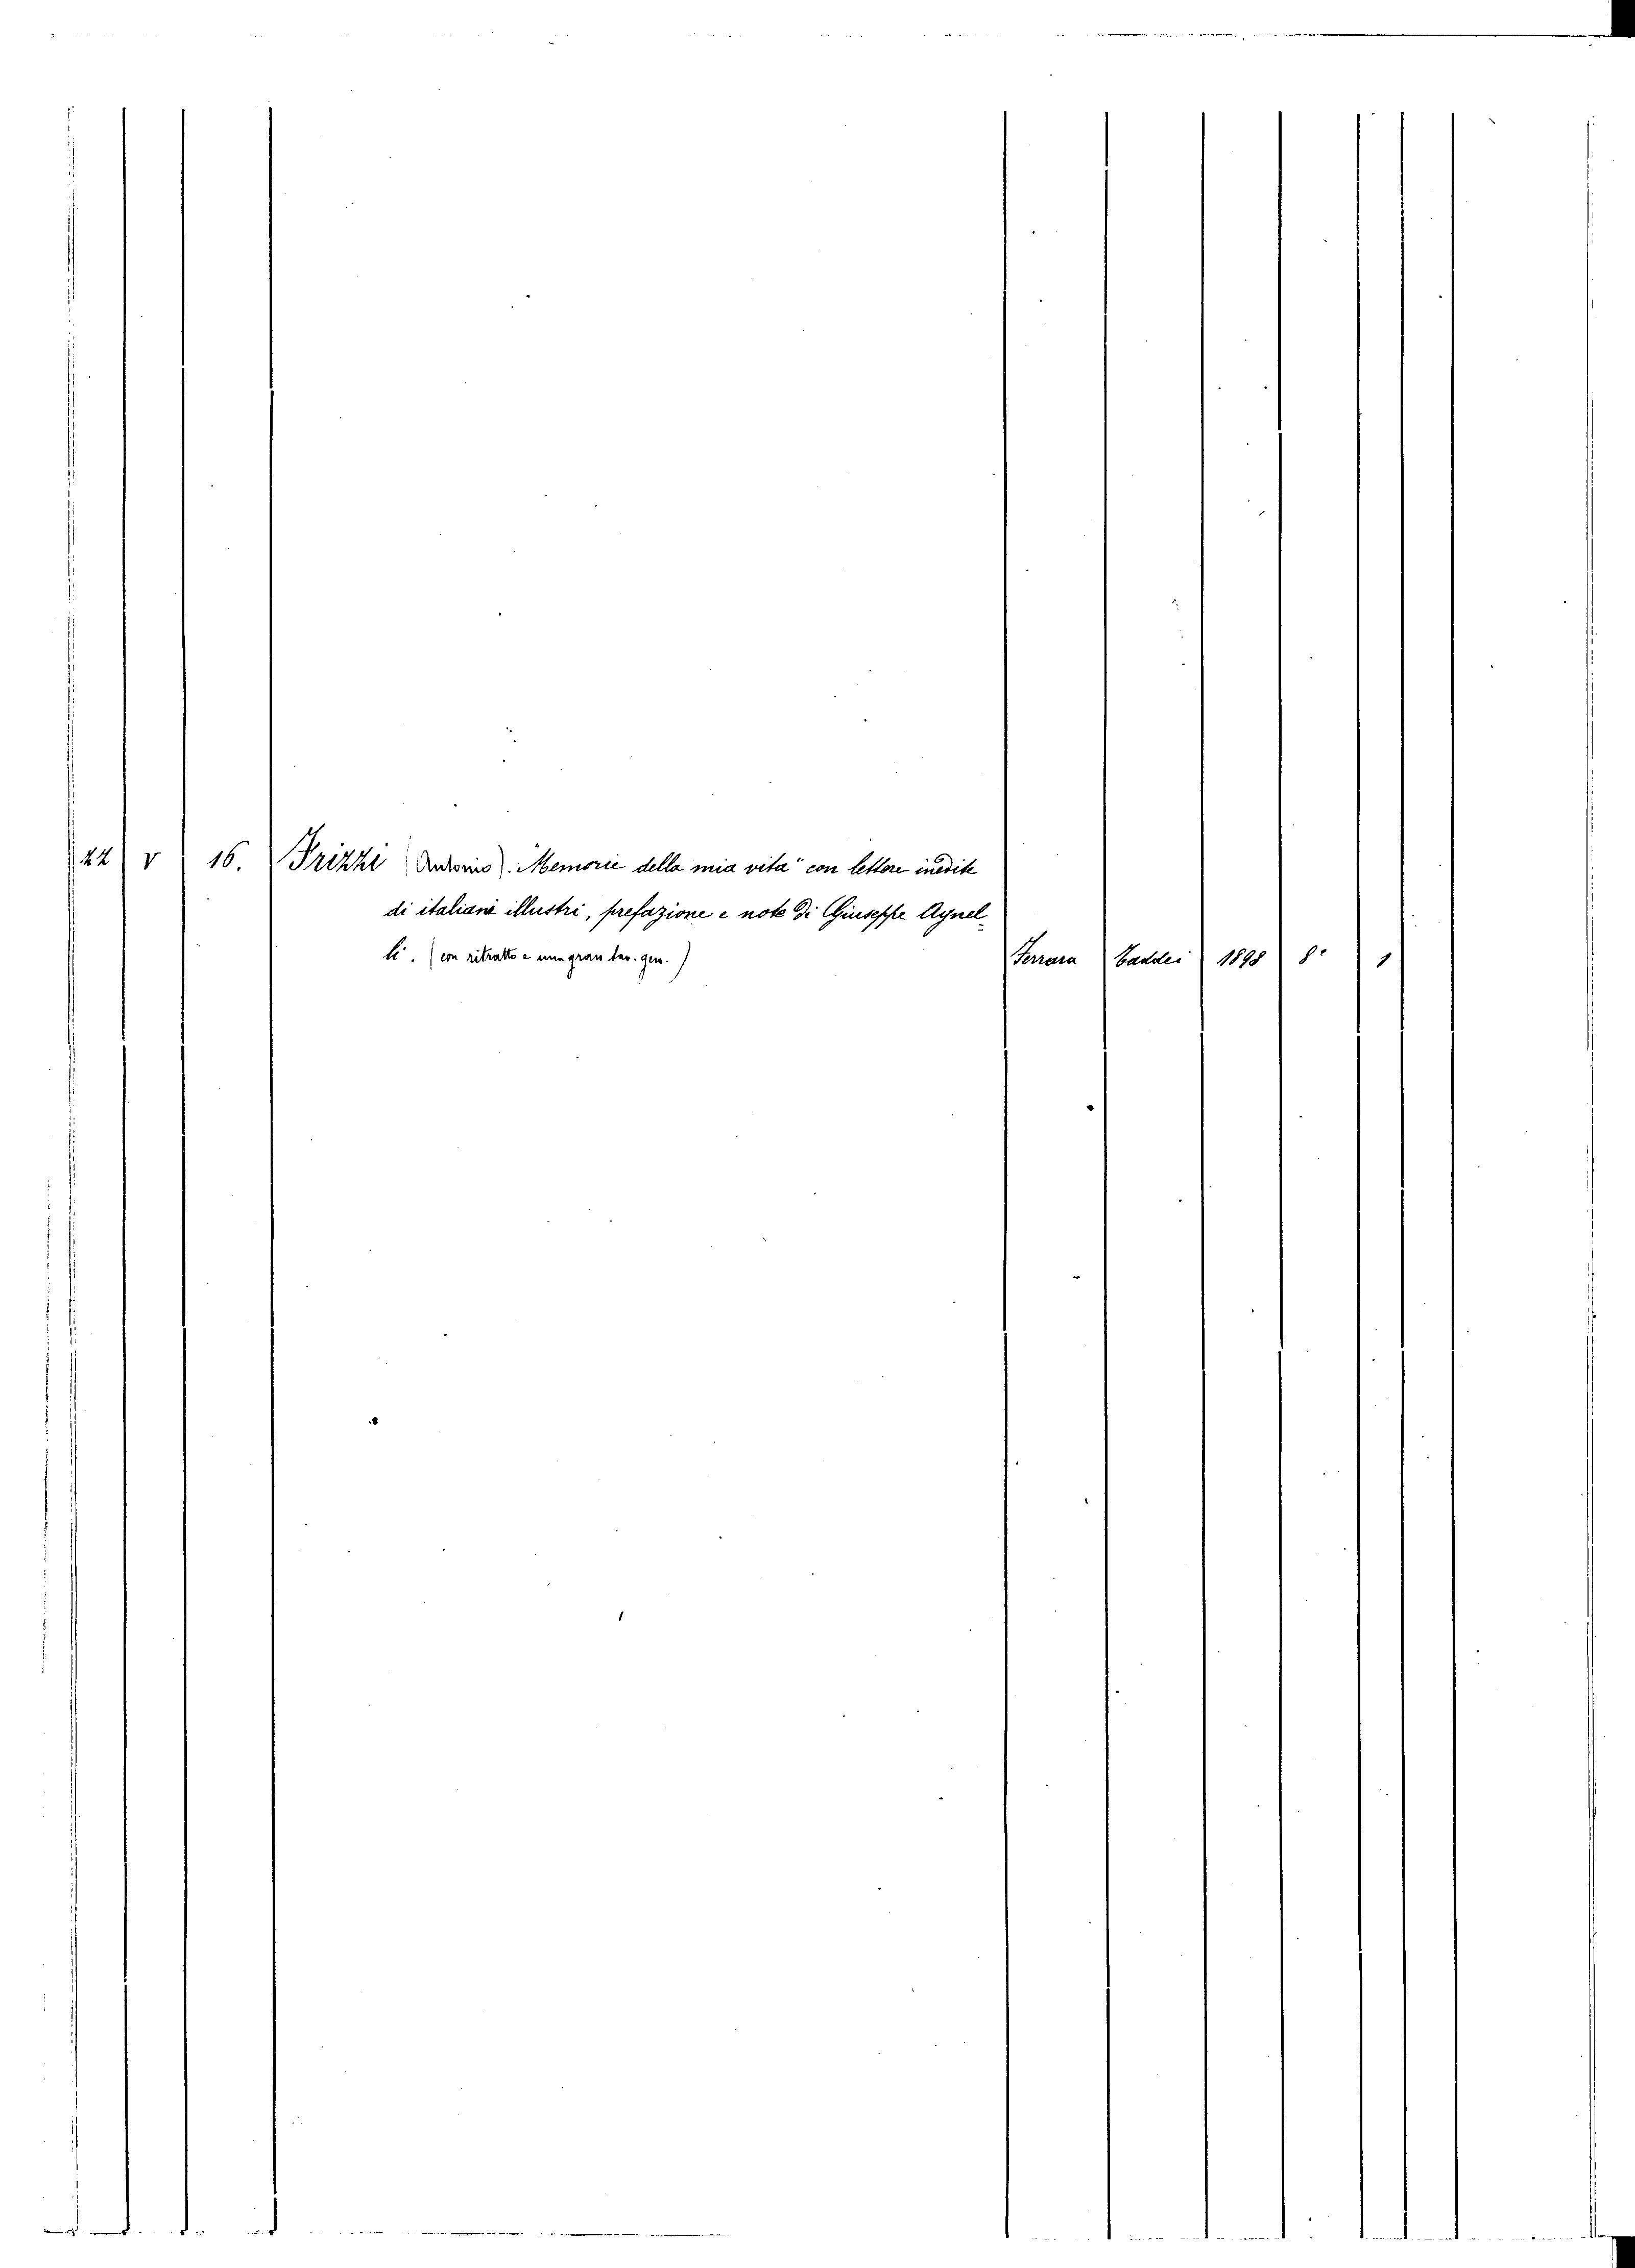 22 V 16. Frizzi (Antonio). Memorie della mia vita" con lettere inedite
di italiani illustri, prefazione e note di Giuseppe Agnel-
li. (con ritratto e una gran tav. gen.) Ferrara Taddei 1898 8° 1